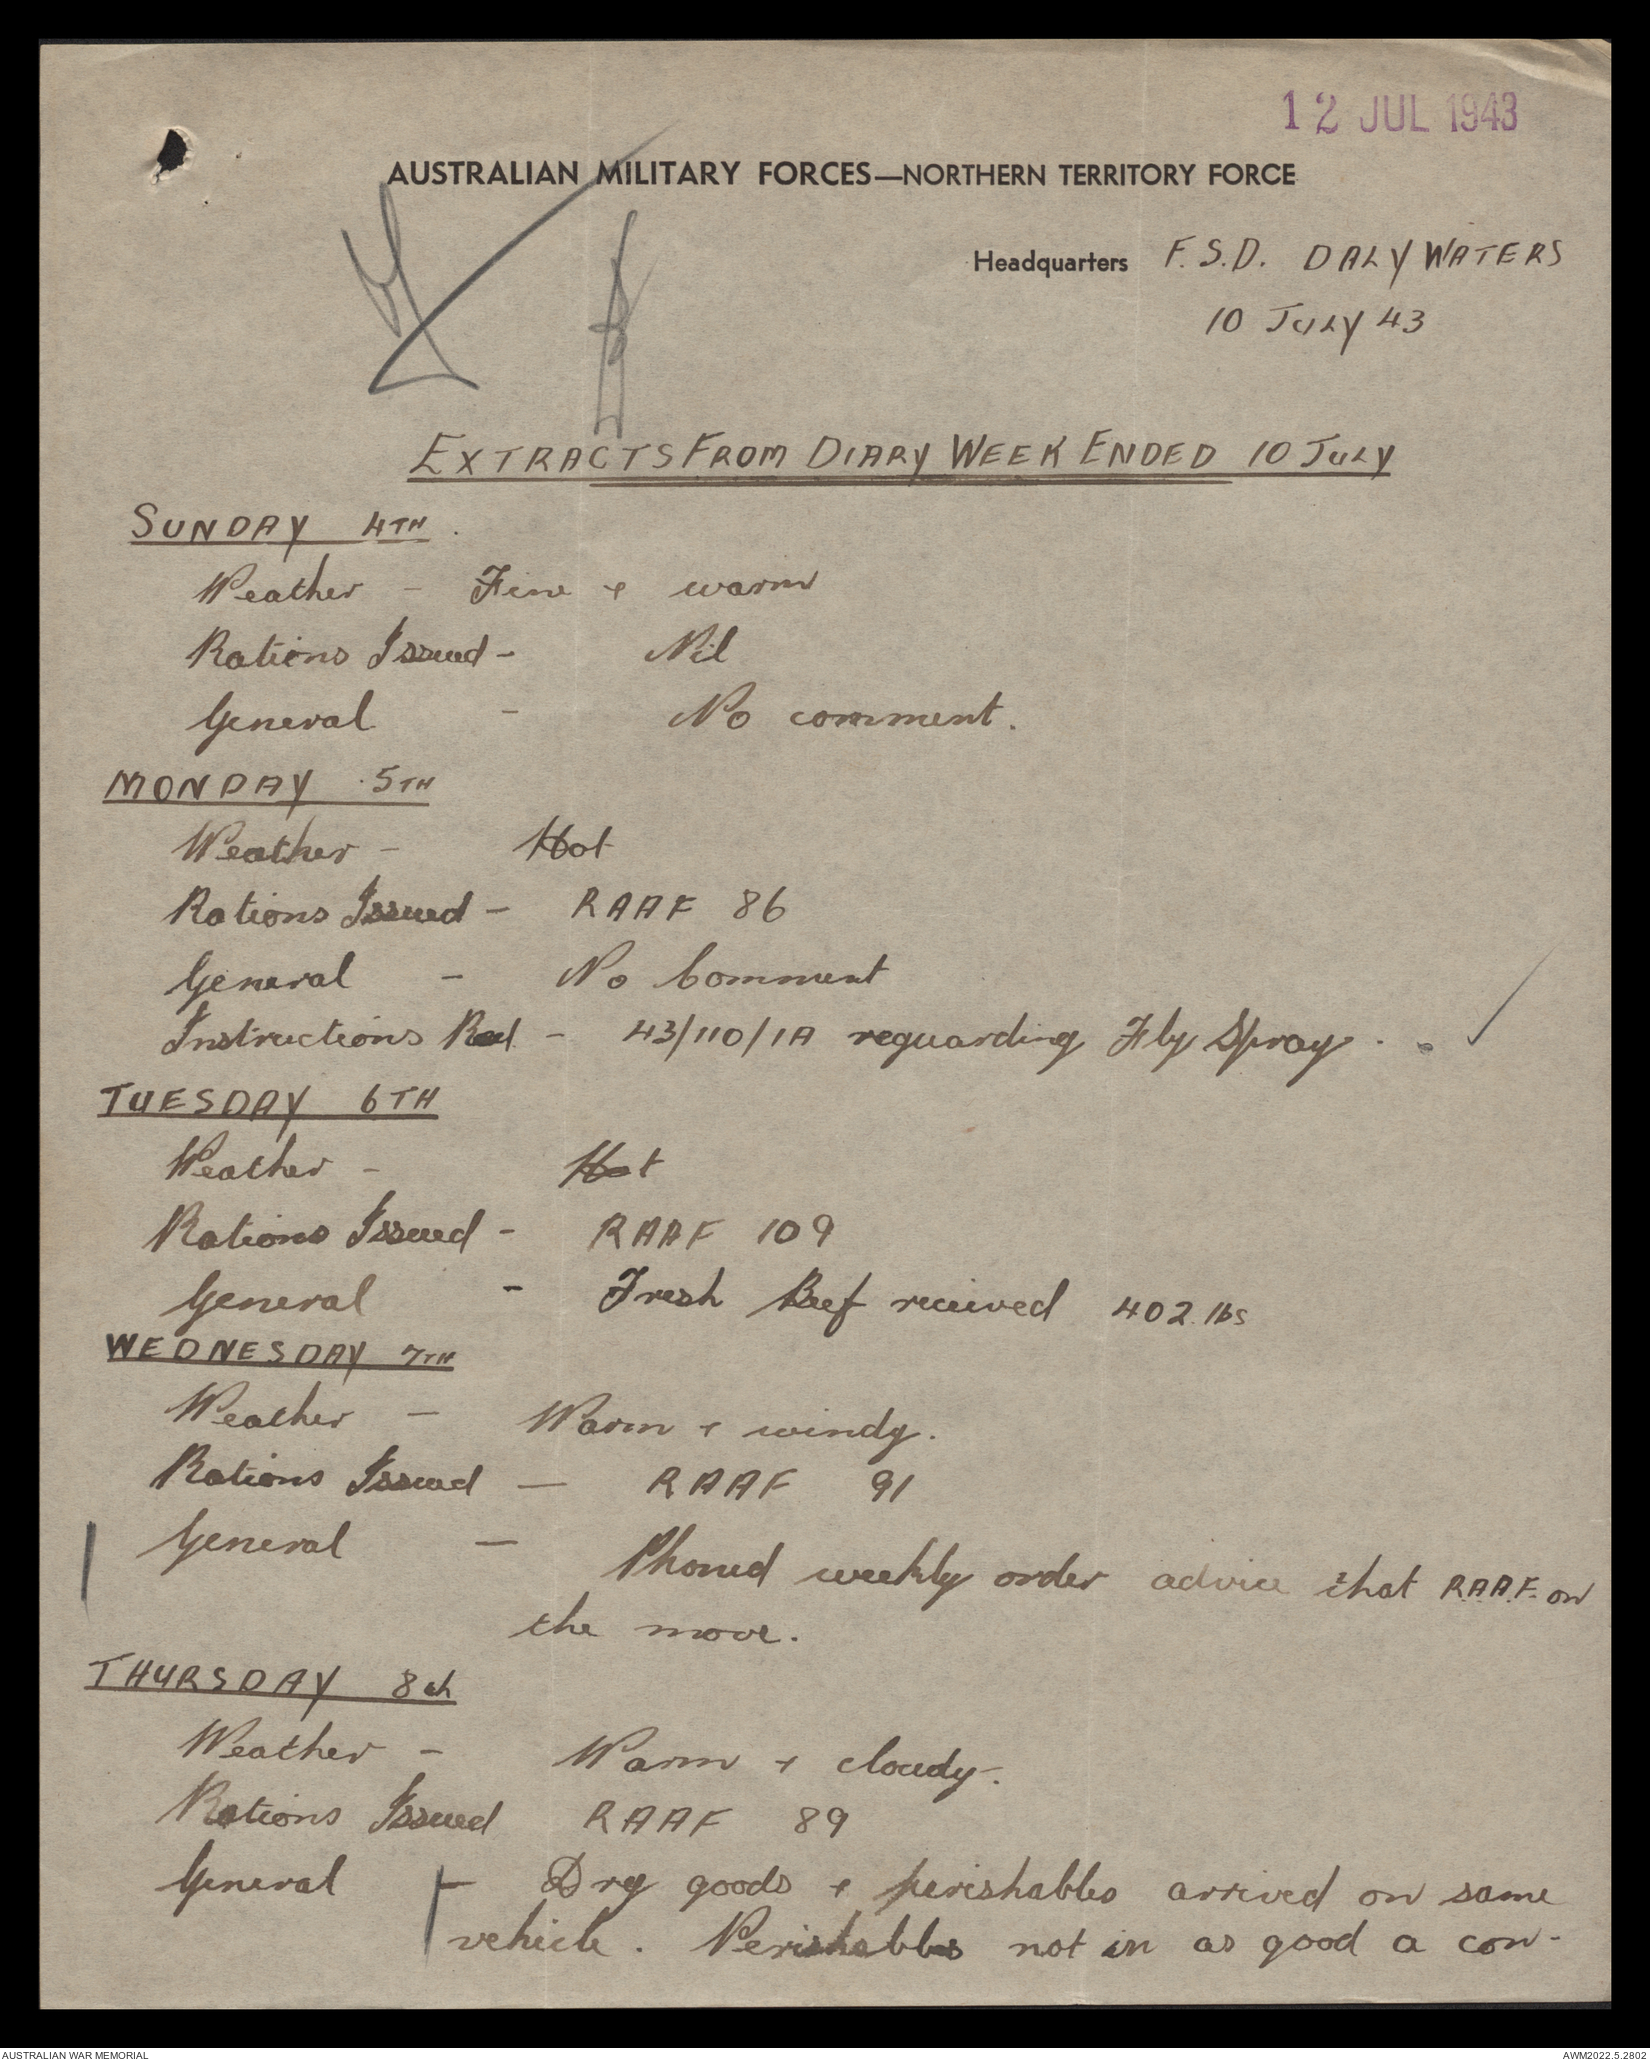 12 JUL 1943
AUSTRALIAN MILITARY FORCES—NORTHERN TERRITORY FORCE
Headquarters F.S.D. DALY WATERS
10 JULY 43
EXTRACTS FROM DIARY WEEK ENDED 10 JULY
SUNDAY 4TH.
Weather - Fine & warm
Rations Issued - Nil
General - No comment.
MONDAY 5TH
Weather - Hot
Rations Issued - RAAF 86
General - No Comment
Instructions Red - 43/110/1A reguarding Fly Spray.
TUESDAY 6TH
Weather - Hot
Rations Issued - RAAF 109
General - Fresh Beef received 402 lbs
WEDNESDAY 7TH
Weather - Warm & windy.
Rations Issued - RAAF 91
General - Phoned weekly order advice that R.A.A.F. on
the move.
THURSDAY 8th
Weather - Warm & cloudy.
Rations Issued RAAF 89
General - Dry goods & perishables arrived on same
vehicle. Perishables not in as good a con-
AUSTRALIAN WAR MEMORIAL AWM2022.5.2802